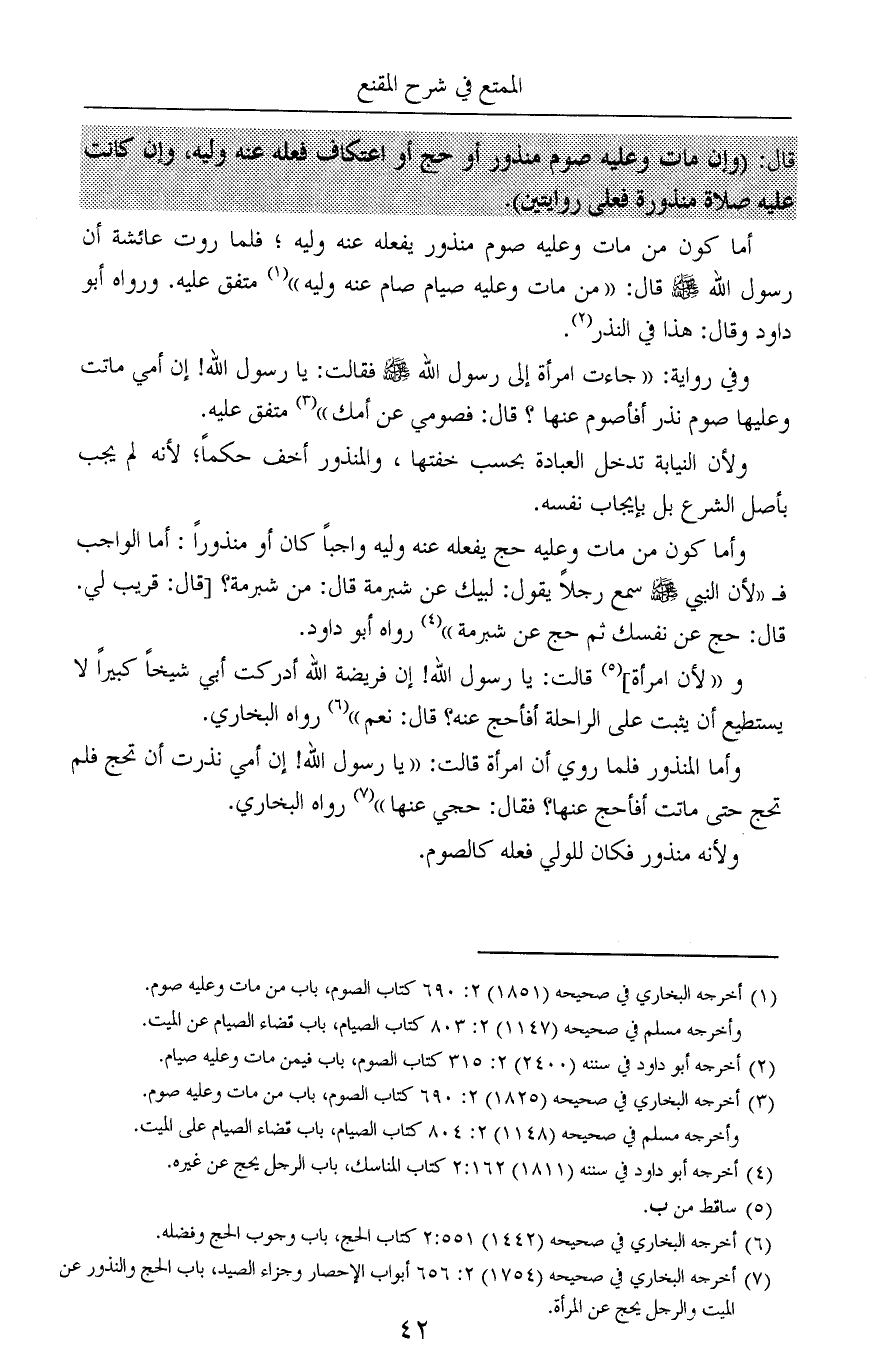 الممتع في شرح المقنع
قال: (وإن مات وعليه صوم منذور أو حج أو اعتكاف فعله عنه وليه، وإن كانت
عليه صلاة منذورة فعلى روايتين).
أما كون من مات وعليه صوم منذور يفعله عنه وليه ؛ فلما روت عائشة أن
رسول الله ﷺ قال: «من مات وعليه صيام صام عنه وليه»(١) متفق عليه. ورواه أبو
داود وقال: هذا في النذر(٢).
وفي رواية: «جاءت امرأة إلى رسول الله ﷺ فقالت: يا رسول الله! إن أمي ماتت
وعليها صوم نذر أفأصوم عنها ؟ قال: فصومي عن أمك»(٣) متفق عليه.
ولأن النيابة تدخل العبادة بحسب خفتها ، والمنذور أخف حكماً؛ لأنه لم يجب
بأصل الشرع بل بإيجاب نفسه.
وأما كون من مات وعليه حج يفعله عنه وليه واجباً كان أو منذوراً : أما الواجب
فـ «لأن النبي ﷺ سمع رجلاً يقول: لبيك عن شبرمة قال: من شبرمة؟ [قال: قريب لي.
قال: حج عن نفسك ثم حج عن شبرمة»(٤) رواه أبو داود.
و «لأن امرأة](٥) قالت: يا رسول الله! إن فريضة الله أدركت أبي شيخاً كبيراً لا
يستطيع أن يثبت على الراحلة أفأحج عنه؟ قال: نعم»(٦) رواه البخاري.
وأما المنذور فلما روي أن امرأة قالت: «يا رسول الله! إن أمي نذرت أن تحج فلم
تحج حتى ماتت أفأحج عنها؟ فقال: حجي عنها»(٧) رواه البخاري.
ولأنه منذور فكان للولي فعله كالصوم.
(١) أخرجه البخاري في صحيحه (١٨٥١) ٢: ٦٩٠ كتاب الصوم، باب من مات وعليه صوم.
وأخرجه مسلم في صحيحه (١١٤٧) ٢: ٨٠٣ كتاب الصيام، باب قضاء الصيام عن الميت.
(٢) أخرجه أبو داود في سننه (٢٤٠٠) ٢: ٣١٥ كتاب الصوم، باب فيمن مات وعليه صيام.
(٣) أخرجه البخاري في صحيحه (١٨٢٥) ٢: ٦٩٠ كتاب الصوم، باب من مات وعليه صوم.
وأخرجه مسلم في صحيحه (١١٤٨) ٢: ٨٠٤ كتاب الصيام، باب قضاء الصيام على الميت.
(٤) أخرجه أبو داود في سننه (١٨١١) ٢:١٦٢ كتاب المناسك، باب الرجل يحج عن غيره.
(٥) ساقط من ب.
(٦) أخرجه البخاري في صحيحه (١٤٤٢) ٢:٥٥١ كتاب الحج، باب وجوب الحج وفضله.
(٧) أخرجه البخاري في صحيحه (١٧٥٤) ٢: ٦٥٦ أبواب الإحصار وجزاء الصيد، باب الحج والنذور عن
الميت والرجل يحج عن المرأة.
٤٢